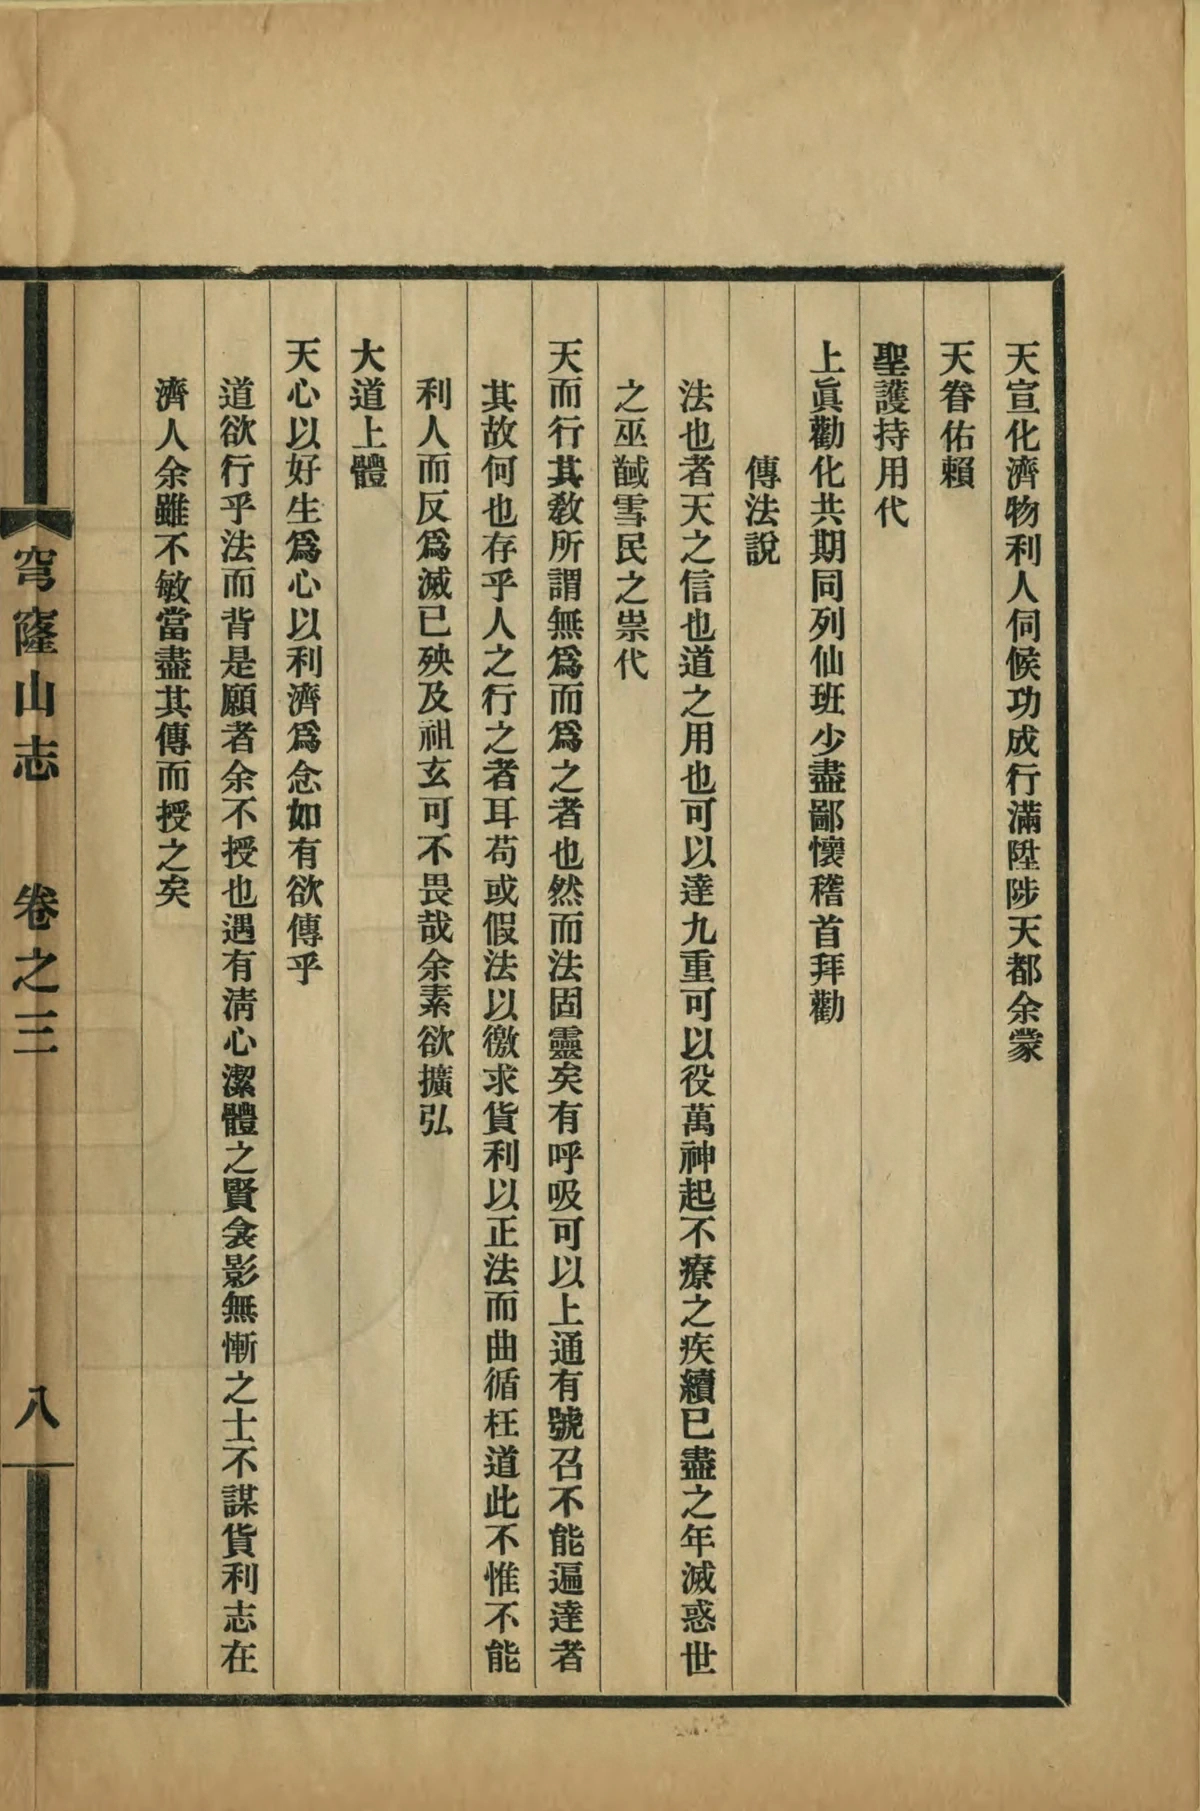 天宣化濟物利人伺候功成行滿陞陟天都余蒙
天眷佑賴
聖護持用代
上眞勸化共期同列仙班少盡鄙懷稽首拜勸
傳法說
法也者天之信也道之用也可以達九重可以役萬神起不療之疾續已盡之年滅惑世
之巫馘雪民之祟代
天而行其敎所謂無爲而爲之者也然而法固靈矣有呼吸可以上通有號召不能遍達者
其故何也存乎人之行之者耳苟或假法以徼求貨利以正法而曲循枉道此不惟不能
利人而反爲滅已殃及祖玄可不畏哉余素欲擴弘
大道上體
天心以好生爲心以利濟爲念如有欲傳乎
道欲行乎法而背是願者余不授也遇有淸心潔體之賢衾影無慚之士不謀貨利志在
濟人余雖不敏當盡其傳而授之矣
穹窿山志 卷之三 八